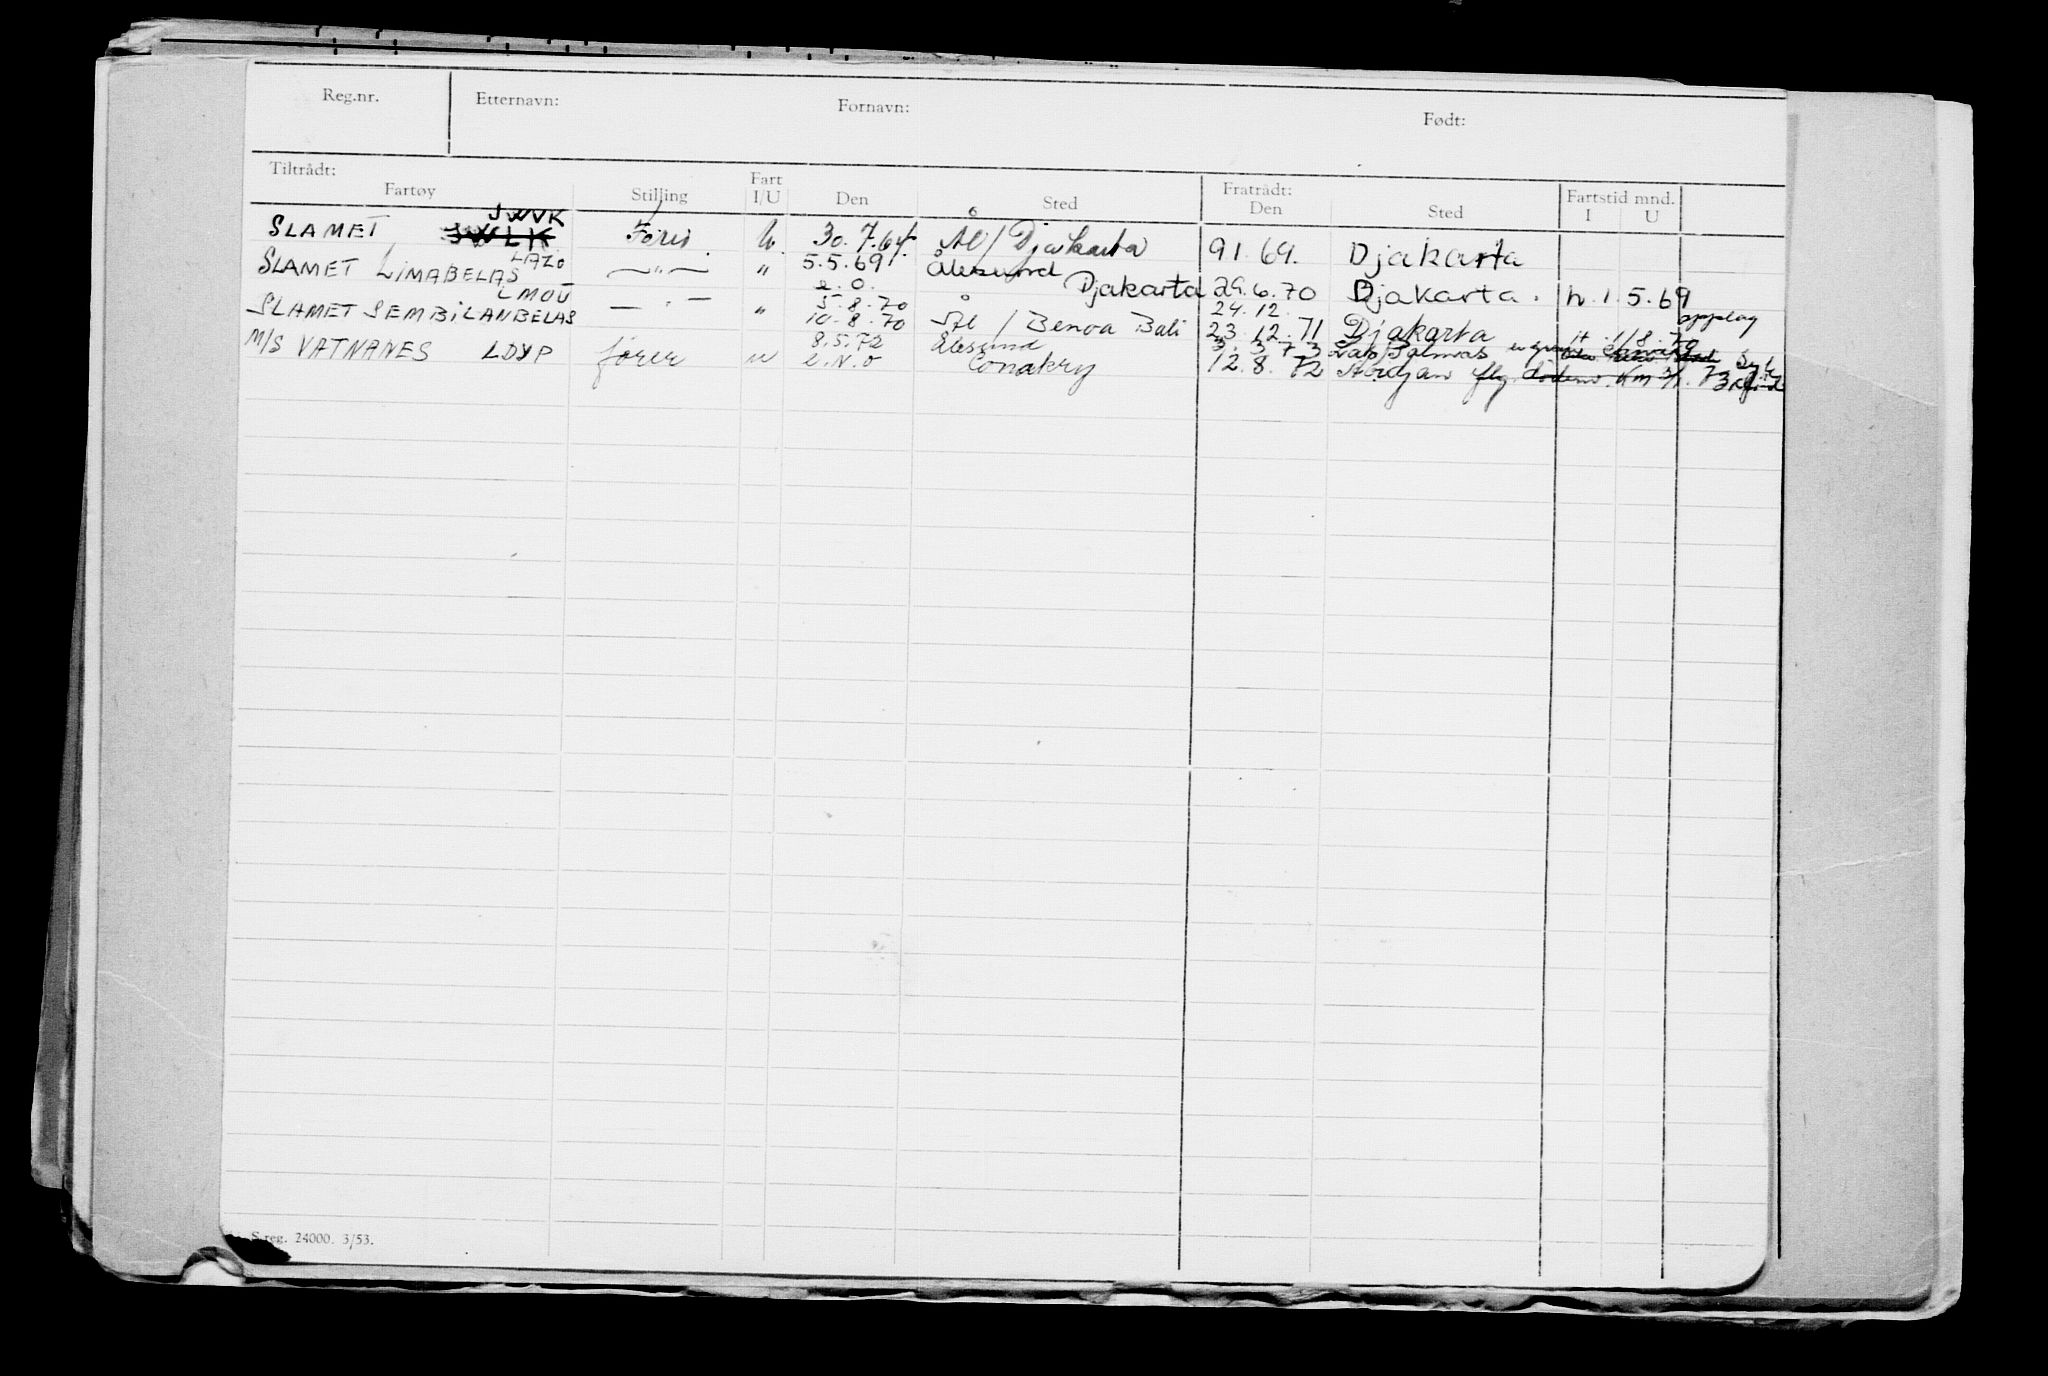 Reg.nr. Etternavn: Fornavn: Født:
Tiltrådt: Fratrådt:
Fartøy Stilling Fart I/U Den Sted Den Sted Fartstid mnd. I U
JWVK
SLAMET JWLK Förer u. 30.7.64. Ål/Djakarta 9 1. 69. Djakarta
LAZO
SLAMET LIMABELAS —"— " 5.5.69 Ålesund Djakarta 29.6.70 Djakarta. h. 1. 5. 69
LMOU 5.8.70 24.12. opplag
SLAMET SEMBILANBELAS —"— " 10.8.70 Ål / Benoa Bali 23.12.71 Djakarta 1/8.70
8.5.72 Ålesund 3. 5 73 Las Palmas
M/S VATNANES LDYP fører u e.N.o Conakry 12.8.72 Abidjan fly
S.reg. 24000. 3/53.